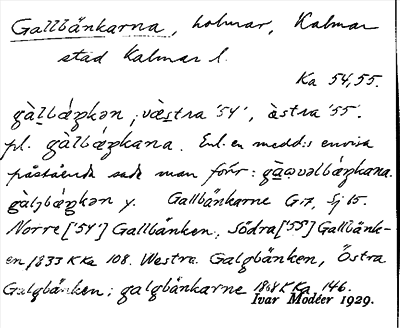 Gallbänkarna, holmar, Kalmar
stad Kalmar l.
Ka 54,55.
gàl̠bǽŋkən, vǽstra '54', àstra '55'.
pl. gàlbǽŋkana. Enl. en medd:s envisa
påstående sade man förr: gàɷvəlbǽŋkana.
gàlbǽŋkən y. Gallbänkarne G:7, Sj 15.
Norre ['54'] Gallbänken; södra ['55'] Gallbänk-
en 1833 K Ka 108. Westra Galgbänken, Östra
Galgbänken; galgbänkarne 1868 K Ka 146.
Ivar Modéer 1929.